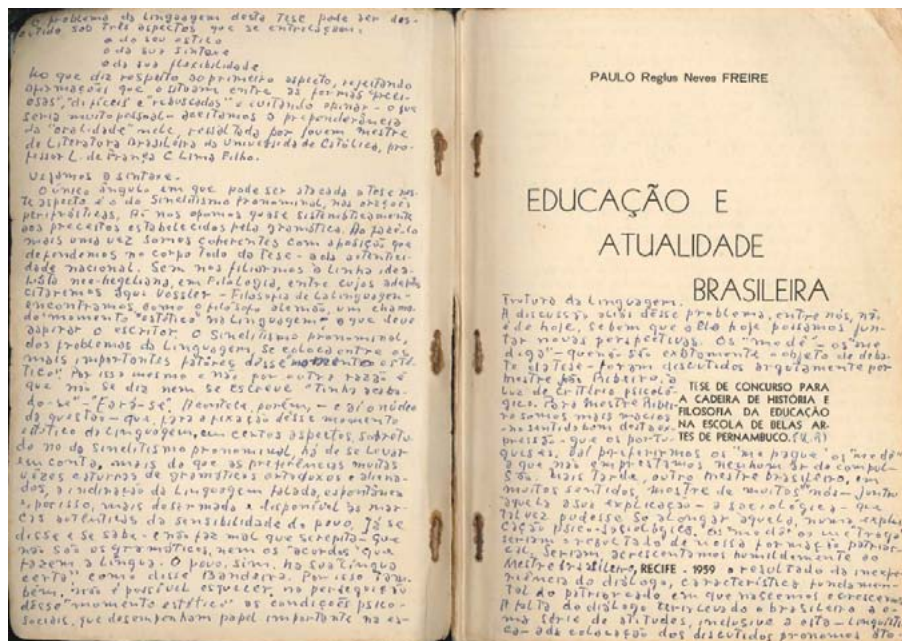 O problema da linguagem desta tese pode ser dis-
cutido sob três aspectos que se entrelaçam:
o do seu estilo
o da sua sintaxe
o da sua flexibilidade
No que diz respeito ao primeiro aspecto, rejeitando
afirmações que o situam entre as formas "preci-
osas", "difíceis" e "rebuscadas" e evitando opinar - o que
seria muito pessoal - aceitamos a preponderância
da "oralidade" nele, ressaltada por jovem mestre
de Literatura Brasileira da Universidade Católica, pro-
fessor L. de França C. Lima Filho.
Vejamos a sintaxe.
O único ângulo em que pode ser atacada a tese nes-
te aspecto é o do Sincletismo pronominal, nas orações
perifrásticas. Aí nos opomos quase sistematicamente
aos preceitos estabelecidos pela gramática. Ao fazê-lo
mais uma vez somos coerentes com a posição que
defendemos no corpo todo da tese - a da autentici-
dade nacional. Sem nos filiarmos à linha idea-
lista neo-hegeliana, em Filologia, entre cujos adeptos
citaremos aqui Vossler - Filosofia de la linguagem -
encontramos, como o filósofo alemão, um chama-
do "momento "estético" na linguagem" a que deve
aspirar o escritor. O Sincletismo pronominal,
dos problemas da linguagem, se coloca entre os
mais importantes fatôres dêsse momento esté-
tico". Por isso mesmo e não por outra razão é
que não se diz nem se escreve "Tinha acaba-
do-se" - "Fará-se". Acontece, porém, - e aí o núcleo
da questão - que, para a fixação dêsse momento
estético da linguagem, em certos aspectos, sobretu-
do no do sincletismo pronominal, há de se levar
em conta, mais do que as preferências muitas
vêzes caturras de gramáticos ortodoxos e aliena-
dos, a inclinação da linguagem falada, espontânea
e, por isso, mais desarmada e disponível às mar-
cas autênticas da sensibilidade do povo. Já se
disse e se sabe - e não faz mal que se repita - que
não são os gramáticos, nem os "acordos" que
fazem a língua. O povo, sim, na sua "língua
certa" como disse Bandeira. Por isso tam-
bém, não é possível esquecer, na persecução
dêsse "momento estético" as condições psico-
sociais, que desempenham papel importante na es-
PAULO Reglus Neves FREIRE
EDUCAÇÃO E
ATUALIDADE
BRASILEIRA
trutura da linguagem.
A discussão aliás dêsse problema, entre nós, não
é de hoje, se bem que a ela hoje possamos jun-
tar novas perspectivas. Os "me dê" - os "me
diga" - que não são exatamente o objeto de deba-
te da tese - foram discutidos argutamente por
mestre João Ribeiro, à
luz de critério psicoló-
gico. Para mestre Ribei-
ro somos mais macios
- no sentido bom desta ex-
pressão - que os portu-
TESE DE CONCURSO PARA
A CADEIRA DE HISTÓRIA E
FILOSOFIA DA EDUCAÇÃO
NA ESCOLA DE BELAS AR-
TES DE PERNAMBUCO.
guêses. Daí preferirmos os "me pague" os "me dê"
a que não emprestamos nenhum ar de compul-
são. Mais tarde, outro mestre brasileiro, em
muitos sentidos, mestre de muitos nós - junto
àquela a sua explicação - a sociológica - que
talvez pudesse se alongar àquela, numa expli-
cação psico-sociológica, em que
seriam o resultado de nossa formação patriar-
cal. Seriam, acrescentamos humildemente ao
Mestre brasileiro, o resultado da inexpe-
RECIFE - 1959
riência do diálogo, característica fundamen-
tal do patriarcado em que nascemos e crescemos.
A falta do diálogo teria levado o brasileiro a u-
ma série de atitudes, inclusive a esta - linguísti-
ca - a da colocação dos discutidos pronomes áto-